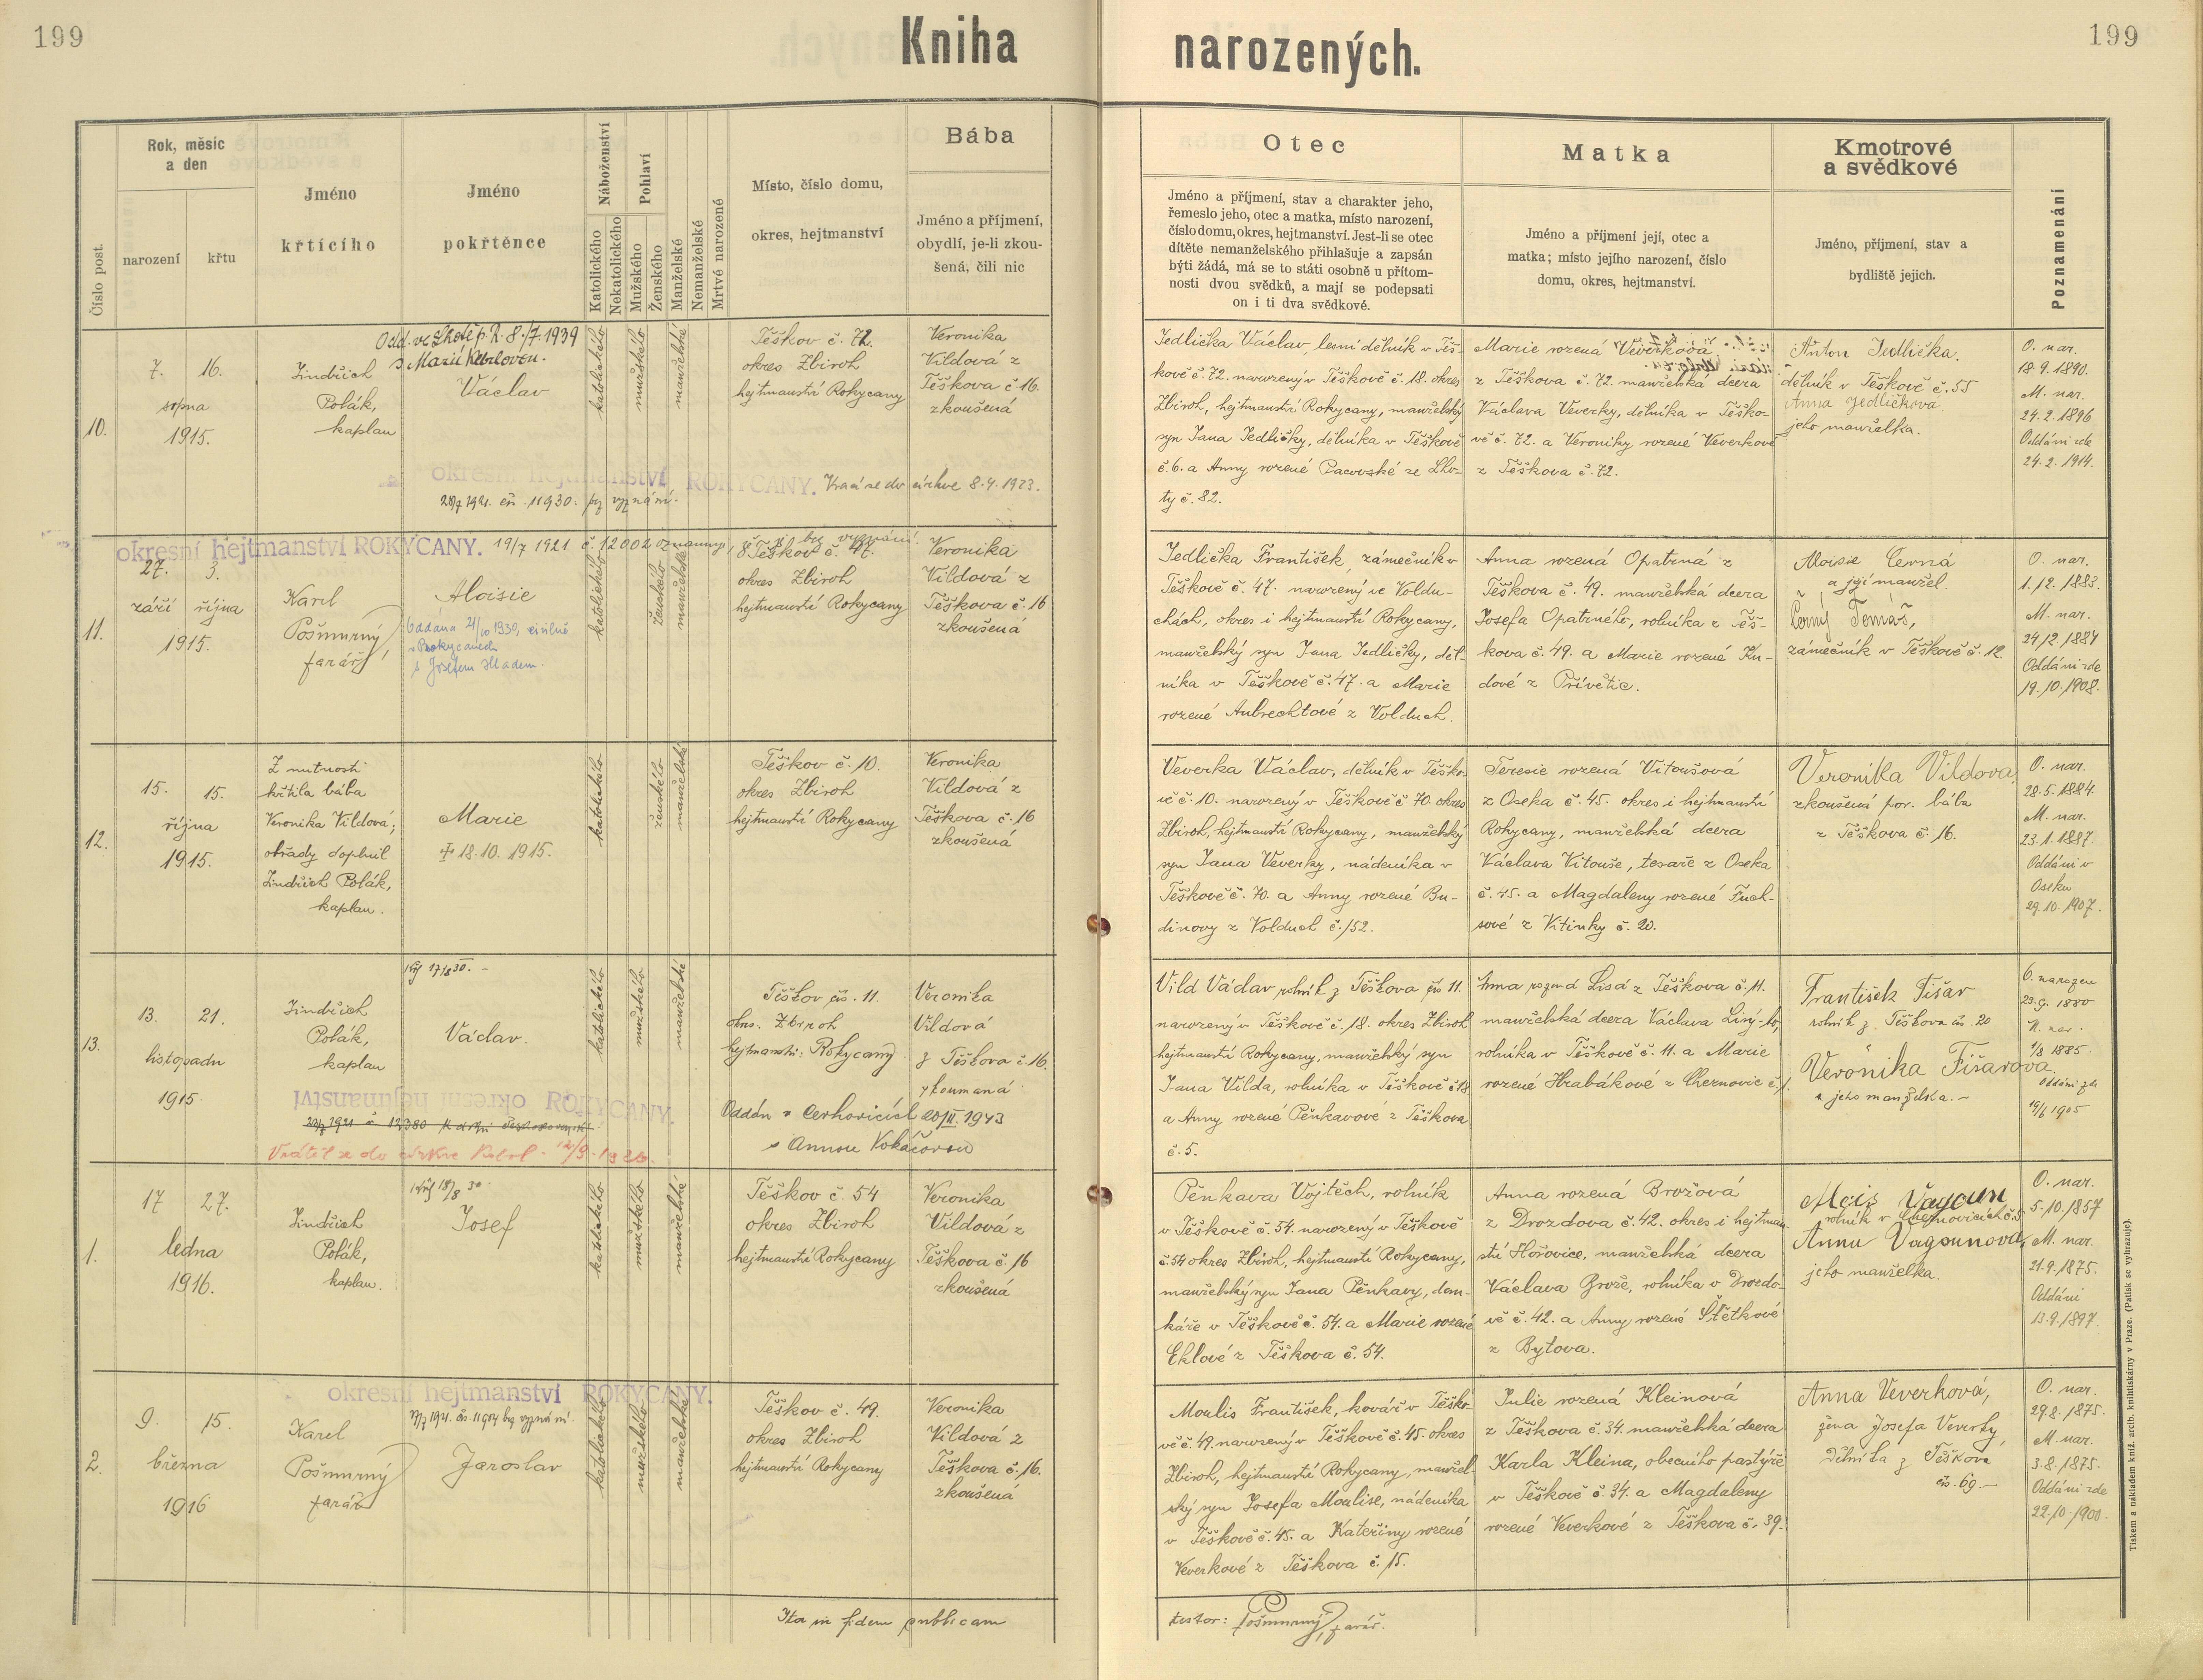 199
Kniha
narozených.
199
Číslo post.
Rok, měsíc
a den
narození
křtu
Jméno
křtícího
Jméno
pokřtěnce
Náboženství
Katolického
Nekatolického
Pohlaví
Mužského
Ženského
Manželské
Nemanželské
Mrtvě narozené
Místo, číslo domu,
okres, hejtmanství
Bába
Jméno a příjmení,
obydlí, je-li zkou-
šená, čili nic
Otec
Jméno a příjmení, stav a charakter jeho,
řemeslo jeho, otec a matka, místo narození,
číslo domu, okres, hejtmanství. Jest-li se otec
dítěte nemanželského přihlašuje a zapsán
býti žádá, má se to státi osobně u přítom-
nosti dvou svědků, a mají se podepsati
on i ti dva svědkové.
Matka
Jméno a příjmení její, otec a
matka; místo jejího narození, číslo
domu, okres, hejtmanství.
Kmotrové
a svědkové
Jméno, příjmení, stav a
bydliště jejich.
Poznamenání
10.
7. 16.
srpna
1915.
Jindřich
Polák,
kaplan
8./7. 1939
s Marií
Václav
katolického
mužského
manželské
Těškov č. 72.
okres Zbiroh
hejtmanství Rokycany
Veronika
Vildová z
Těškova č. 16.
zkoušená
okresní hejtmanství ROKYCANY.
Vrací se do církve 8.4.1923.
1921. čís. 11930. bez vyznání.
Jedlička Václav, lesní dělník v Těš-
kově č. 72. narozený v Těškově č. 18. okres
Zbiroh, hejtmanství Rokycany, manželský
syn Jana Jedličky, dělníka v Těškově
č. 6. a Anny rozené Pacovské ze Lho-
ty č. 82.
Marie rozená Veverková
z Těškova č. 72. manželská dcera
Václava Veverky, dělníka v Těško-
vě č. 72. a Veroniky rozené Veverkové
z Těškova č. 72.
Anton Jedlička.
dělník v Těškově č. 55
Anna Jedličková
jeho manželka.
O. nar.
18.9.1890.
M. nar.
24.2.1896
Oddáni zde
24.2.1914.
11.
okresní hejtmanství ROKYCANY. 19/7 1921 č. 12002 bez vyznání.
27. 3.
září října
1915.
Karel
Pošmurný
farář
Aloisie
Oddána 21/10 1930, civilně
v Rokycanech
s Josefem
katolického
ženského
manželské
Těškov č. 47.
okres Zbiroh
hejtmanství Rokycany
Veronika
Vildová z
Těškova č. 16
zkoušená
Jedlička František, zámečník v
Těškově č. 47. narozený ve Voldu-
chách, okres i hejtmanství Rokycany,
manželský syn Jana Jedličky, děl-
níka v Těškově č. 47. a Marie
rozené Aubrechtové z Volduch.
Anna rozená Opatrná z
Těškova č. 49. manželská dcera
Josefa Opatrného, rolníka z Těš-
kova č. 49. a Marie rozené Ku-
dové z Přívětic.
Aloisie Černá
a její manžel
Černý Tomáš,
zámečník v Těškově č. 12.
O. nar.
1.12.1883.
M. nar.
24/2 1884
Oddáni zde
19.10.1908.
12.
15. 15.
října
1915.
Z nutnosti
křtila bába
Veronika Vildová;
obřady doplnil
Jindřich Polák,
kaplan.
Marie
18.10.1915.
katolického
ženského
manželské
Těškov č. 10.
okres Zbiroh
hejtmanství Rokycany
Veronika
Vildová z
Těškova č. 16
zkoušená
Veverka Václav, dělník v Těško-
vě č. 10. narozený v Těškově č. 70. okres
Zbiroh, hejtmanství Rokycany, manželský
syn Jana Veverky, nádeníka v
Těškově č. 70. a Anny rozené Bu-
dinovy z Volduch č. 152.
Teresie rozená Vitoušová
z Oseka č. 45. okres i hejtmanství
Rokycany, manželská dcera
Václava Vitouše, tesaře z Oseka
č. 45. a Magdaleny rozené Fuch-
sové z Vitinky č. 20.
Veronika Vildova
zkoušená por. bába
z Těškova č. 16.
O. nar.
28.5.1884.
M. nar.
23.1.1887.
Oddáni v
Oseku
29.10.1907.
13.
13. 21.
listopadu
1915
Jindřich
Polák,
kaplan
Václav.
katolického
mužského
manželské
Těškov čís. 11.
okres. Zbiroh
hejtmanství: Rokycany
Veronika
Vildová
z Těškova č. 16.
zkoumaná
okresní hejtmanství ROKYCANY.
1921 č 12380
Vrátil se do církve 12/9. 1926.
Oddán v Cerhovicích 20/II. 1943
s Annou Vokáčovou
Vild Václav rolník z Těškova čís 11.
narozený v Těškově č. 18. okres Zbiroh
hejtmanství Rokycany, manželský syn
Jana Vilda, rolníka v Těškově č 18
a Anny rozené Pěnkavové z Těškova
č. 5.
Anna rozená Lisá z Těškova č. 11.
manželská dcera Václava Lisý-ho,
rolníka v Těškově č. 11. a Marie
rozené Hrabákové z Cheznovic č. 1.
František Fišar
rolník z Těškova čís. 20
Veronika Fišarova.
jeho manželka.
O. narozen
23.9. 1880
M. nar.
1/8 1885.
Oddáni zde
19/6 1905
1.
17 27.
ledna
1916.
Jindřich
Polák,
kaplan.
Josef
katolického
mužského
manželské
Těškov č. 54
okres Zbiroh
hejtmanství Rokycany
Veronika
Vildová z
Těškova č. 16
zkoušená
Pěnkava Vojtěch, rolník
v Těškově č. 54. narozený v Těškově
č. 54 okres Zbiroh, hejtmanství Rokycany,
manželský syn Jana Pěnkavy, dom-
káře v Těškově č. 54. a Marie rozené
Eklové z Těškova č. 54.
Anna rozená Brožová
z Drozdova č. 42. okres i hejtman-
ství Hořovice, manželská dcera
Václava Brože, rolníka v Drozdo-
vě č. 42. a Anny rozené Štětkové
z Bytova.
Vagoun
rolník v Cheznovicích č. 5
Anna Vagounova,
jeho manželka.
O. nar.
5.10.1857
M. nar.
21.9.1875.
Oddáni
13.9.1897.
2.
okresní hejtmanství ROKYCANY.
1921. čís. 11914 bez vyznání.
9. 15.
března
1916
Karel
Pošmurný
farář
Jaroslav
katolického
mužského
manželské
Těškov č. 49.
okres Zbiroh
hejtmanství Rokycany
Veronika
Vildová z
Těškova č. 16.
zkoušená
Moulis František, kovář v Těško-
vě č. 49. narozený v Těškově č. 45. okres
Zbiroh, hejtmanství Rokycany, manžel-
ský syn Josefa Moulise, nádeníka
v Těškově č. 45. a Kateřiny rozené
Veverkové z Těškova č. 15.
Julie rozená Kleinová
z Těškova č. 34. manželská dcera
Karla Kleina, obecního pastýře
v Těškově č. 34. a Magdaleny
rozené Veverkové z Těškova č. 39.
Anna Veverková,
žena Josefa Veverky,
dělníka z Těškova
čís. 69.
O. nar.
29.8.1875.
M. nar.
3.8.1875.
Oddáni zde
22.10.1900.
Ita in fidem publicam
testor: Pošmurný, farář.
Tiskem a nákladem kníž. arcib. knihtiskárny v Praze. (Patisk se vyhrazuje).